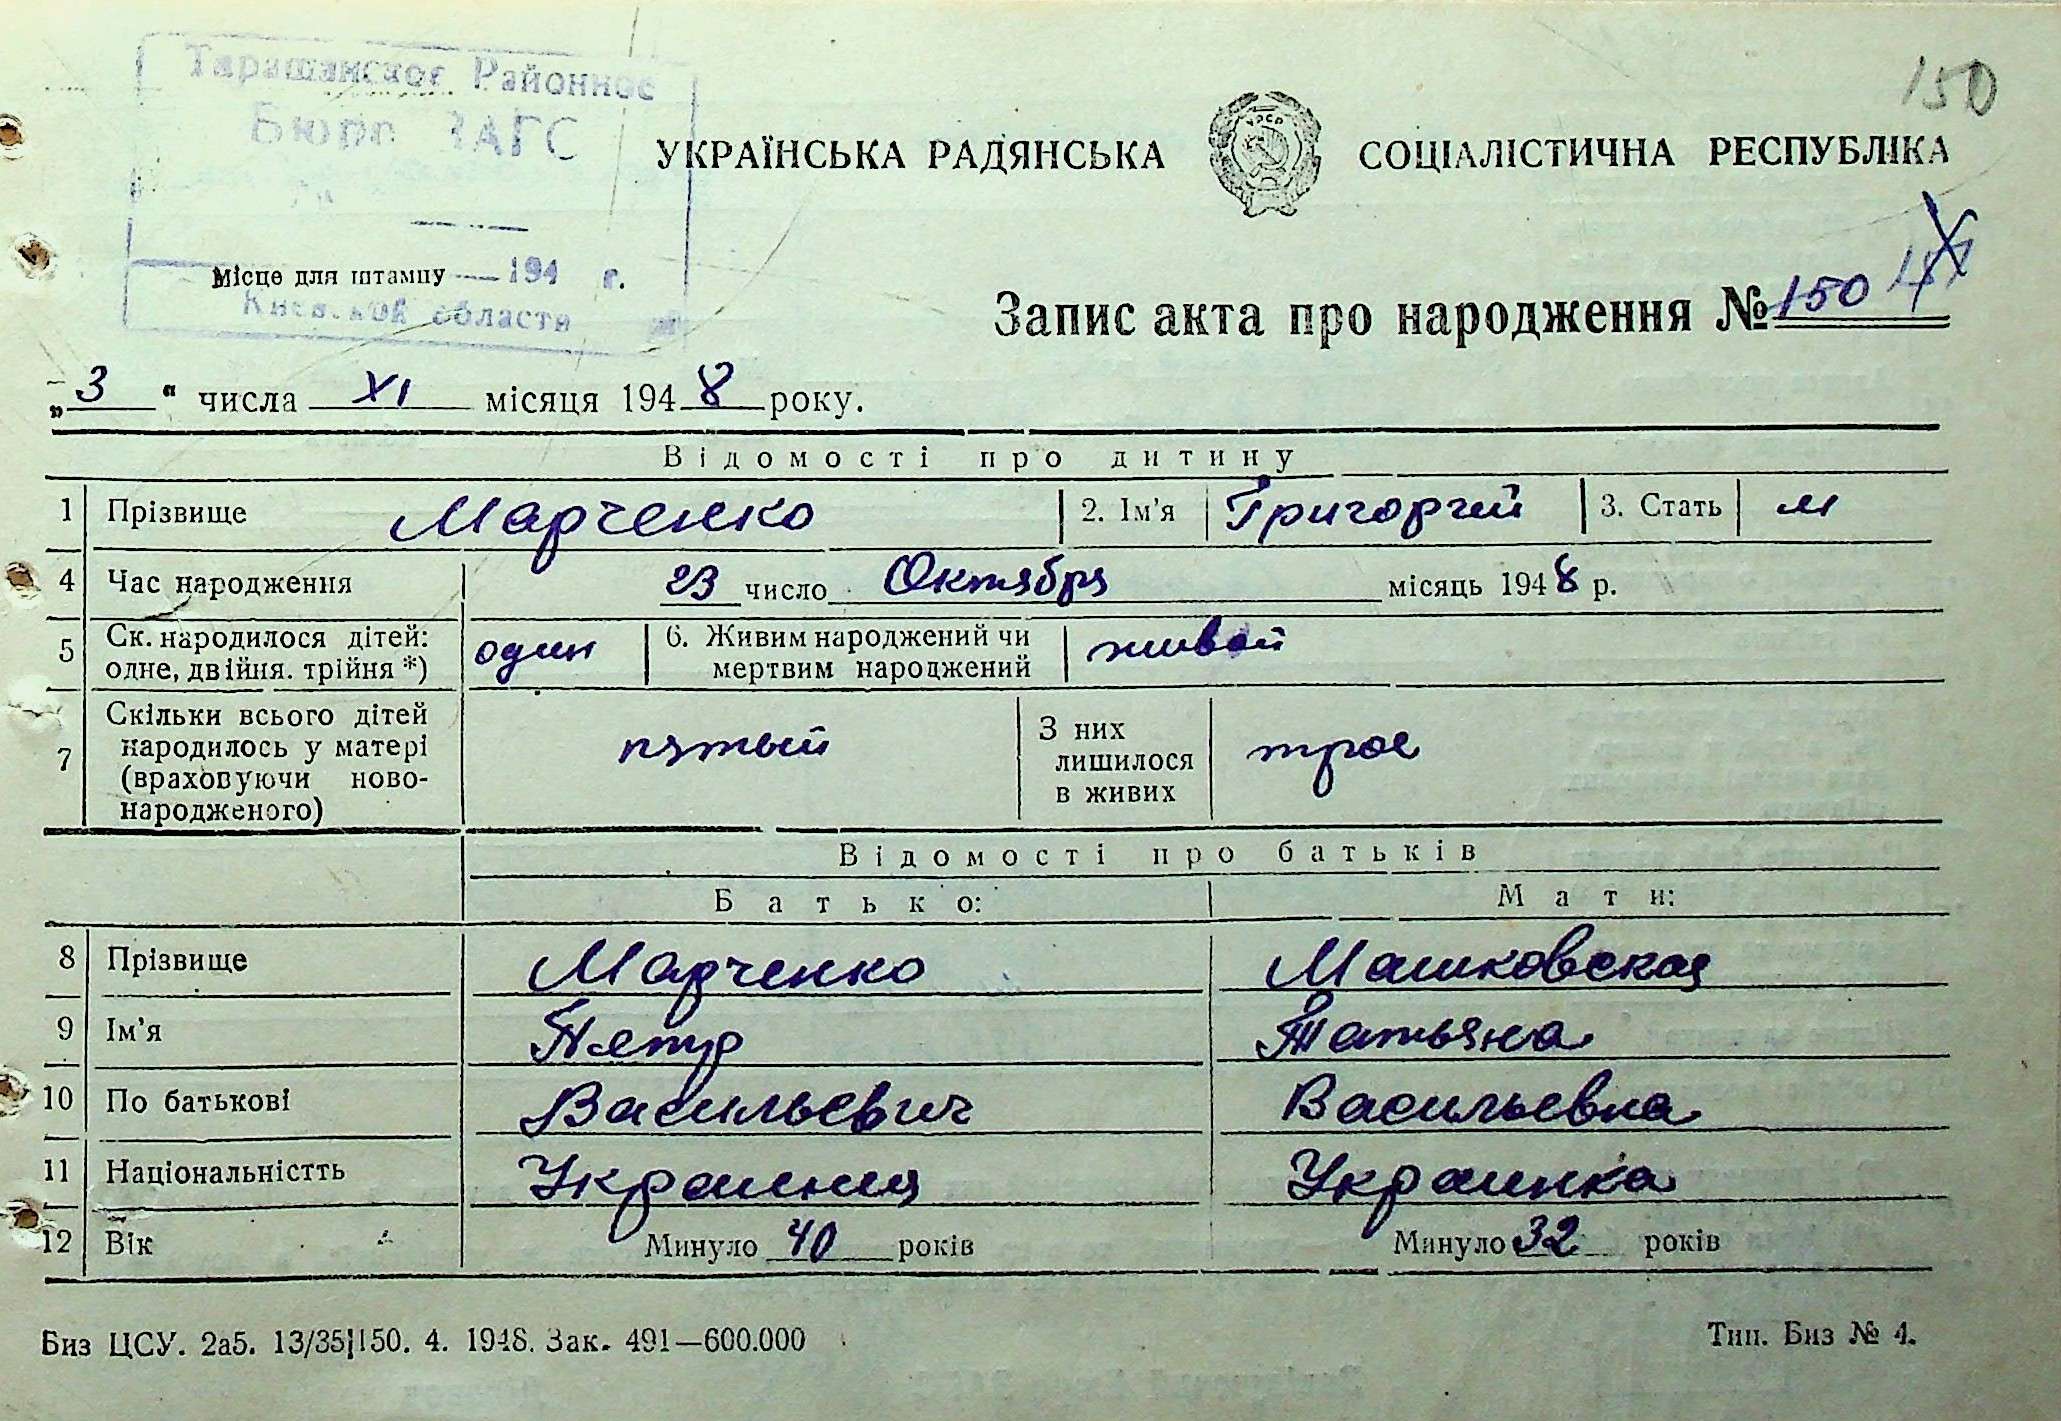 150
Таращанское Районное
Бюро ЗАГС
УКРАЇНСЬКА РАДЯНСЬКА СОЦІАЛІСТИЧНА РЕСПУБЛІКА
УРСР
Місце для штампу 194 г.
Киевской области
Запис акта про народження № 150
„3“ числа XI місяця 1948 року.
Відомості про дитину
1 Прізвище Марченко 2. Ім’я Григорий 3. Стать м
4 Час народження 23 число Октября місяць 1948 р.
5 Ск. народилося дітей: одне, двійня. трійня *) один 6. Живим народжений чи мертвим народжений живой
7 Скільки всього дітей народилось у матері (враховуючи ново-народженого) пятый З них лишилося в живих трое
Відомості про батьків
Батько: Мати:
8 Прізвище Марченко Машковская
9 Ім’я Петр Татьяна
10 По батькові Васильевич Васильевна
11 Національністть Украинец Украинка
12 Вік Минуло 40 років Минуло 32 років
Биз ЦСУ. 2а5. 13/35|150. 4. 1948. Зак. 491—600.000 Тип. Биз № 4.